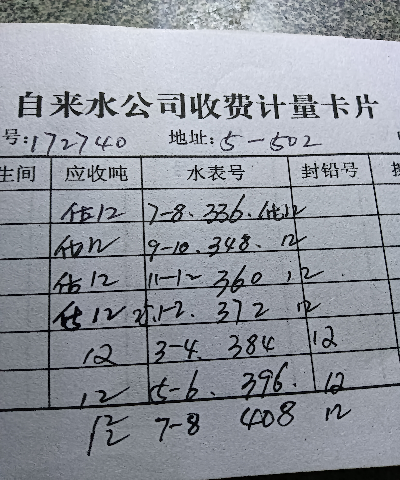 自来水公司收费计量卡片
号:172740 地址:5-502
生间 应收吨 水表号 封铅号
估12 7-8. 336. 估12
估12 9-10. 348. 12
估12 11-12 360 12
估12 25.1-2. 372 12
12 3-4. 384 12
12 5-6. 396. 12
12 7-8 408 12